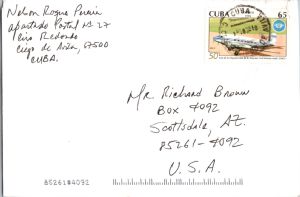 Nelson Roque Pereira
Apartado Postal No 27
Ciro Redondo
Ciego de Avila, 67500
CUBA.
CUBA 65
50
Mr Richard Brown
Box 4092
Scottsdale, AZ
85261-4092
U.S.A.
85261#4092